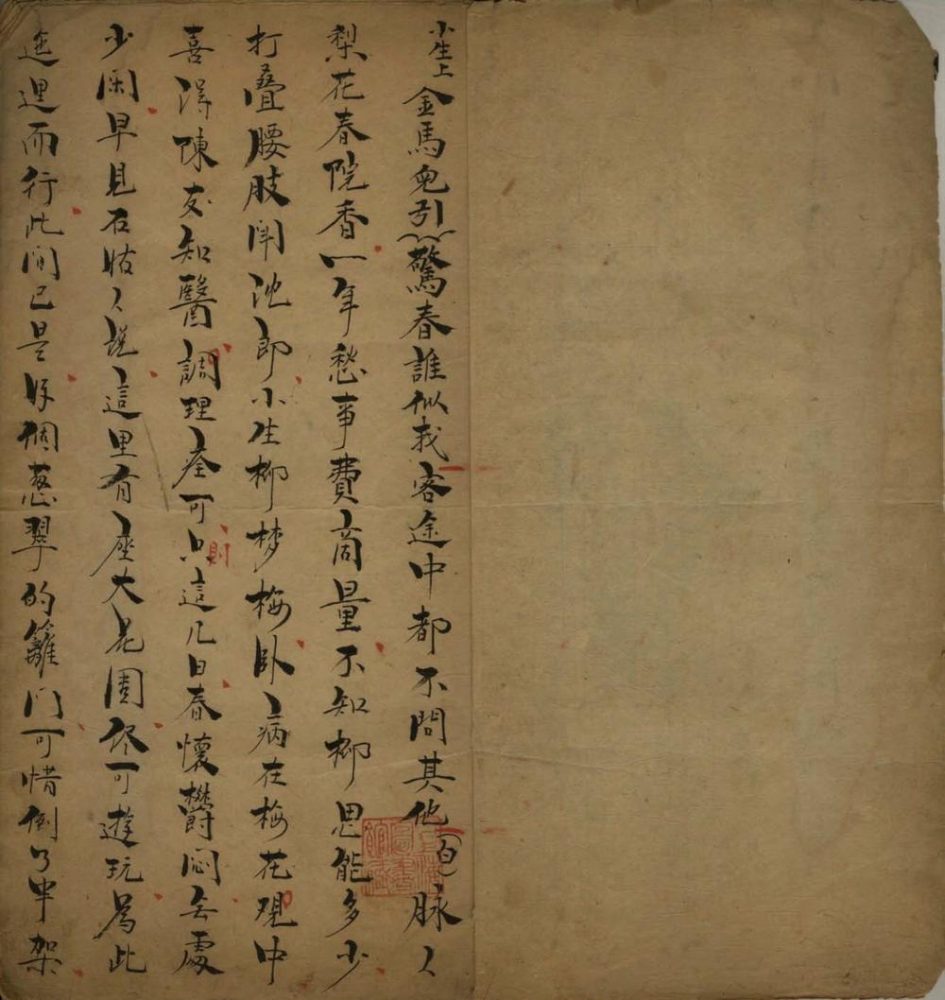 小生上 金馬兒引 驚春誰似我客途中都不問其他(白)脉〻
梨花春院香一年愁事費商量不知柳思能多少
打疊腰肢鬥沈郎小生柳梦梅卧病在梅花覌中
喜得陳友知醫調理痊可只則這几日春懷欝悶無處
少闲早見石姑〻說這里有座大花園儘可遊玩為此
迤逦而行此间已是好個葱翠的籬门可惜倒了半架
上海圖書館藏